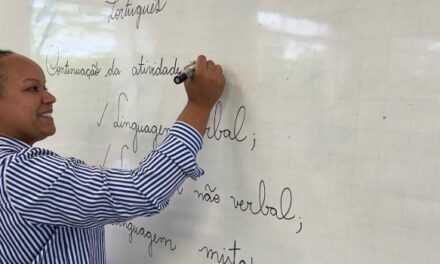 Português
Continuação da atividade
✓ Linguagem verbal;
✓ L não verbal;
Linguagem mista